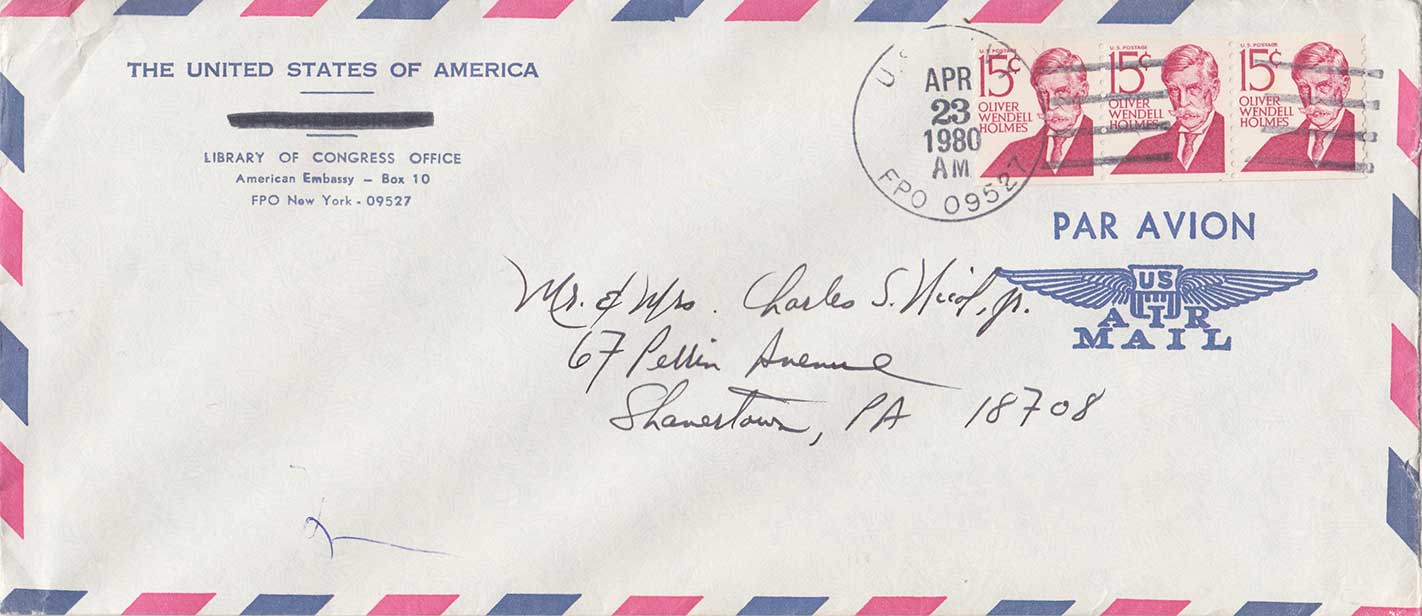 THE UNITED STATES OF AMERICA
LIBRARY OF CONGRESS OFFICE
American Embassy – Box 10
FPO New York - 09527
U.S.
APR
23
1980
AM
FPO 09527
U.S. POSTAGE
15¢
OLIVER
WENDELL
HOLMES
U.S. POSTAGE
15¢
OLIVER
WENDELL
HOLMES
U.S. POSTAGE
15¢
OLIVER
WENDELL
HOLMES
PAR AVION
US
AIR
MAIL
Mr. & Mrs. Charles S. Nicol, Jr.
67 Perrin Avenue
Shavertown, PA 18708